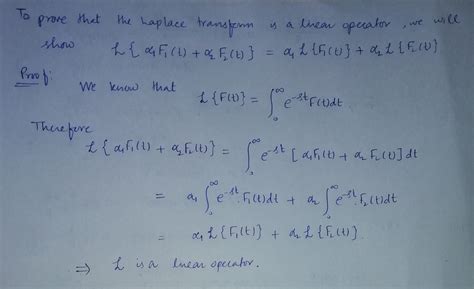 To prove that the Laplace transform is a linear operator, we will
show L{α₁F₁(t) + α₂F₂(t)} = α₁ L{F₁(t)} + α₂ L{F₂(t)}
Proof:
We know that
L{F(t)} = ∫₀^∞ e^{-st} F(t) dt.
Therefore
L{α₁F₁(t) + α₂F₂(t)} = ∫₀^∞ e^{-st} [α₁F₁(t) + α₂F₂(t)] dt
= α₁ ∫₀^∞ e^{-st} F₁(t) dt + α₂ ∫₀^∞ e^{-st} F₂(t) dt
= α₁ L{F₁(t)} + α₂ L{F₂(t)}
⇒ L is a linear operator.